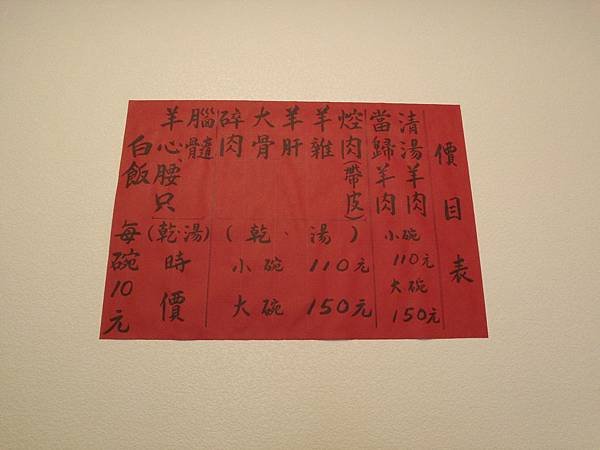 價目表
清湯羊肉
當歸羊肉
小碗
110元
大碗
150元
焢肉(帶皮)
羊雜
羊肝
大骨
碎肉
(乾、湯)
小碗 110元
大碗 150元
腦髓
羊心、腰只
(乾湯)
時價
白飯
每碗10元